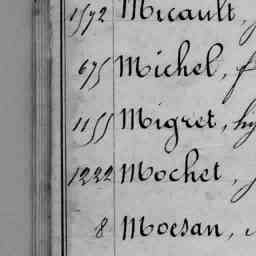 1572 Micault,
675 Michel, f
1155 Migret, hy
1222 Mochet,
8 Moesan,